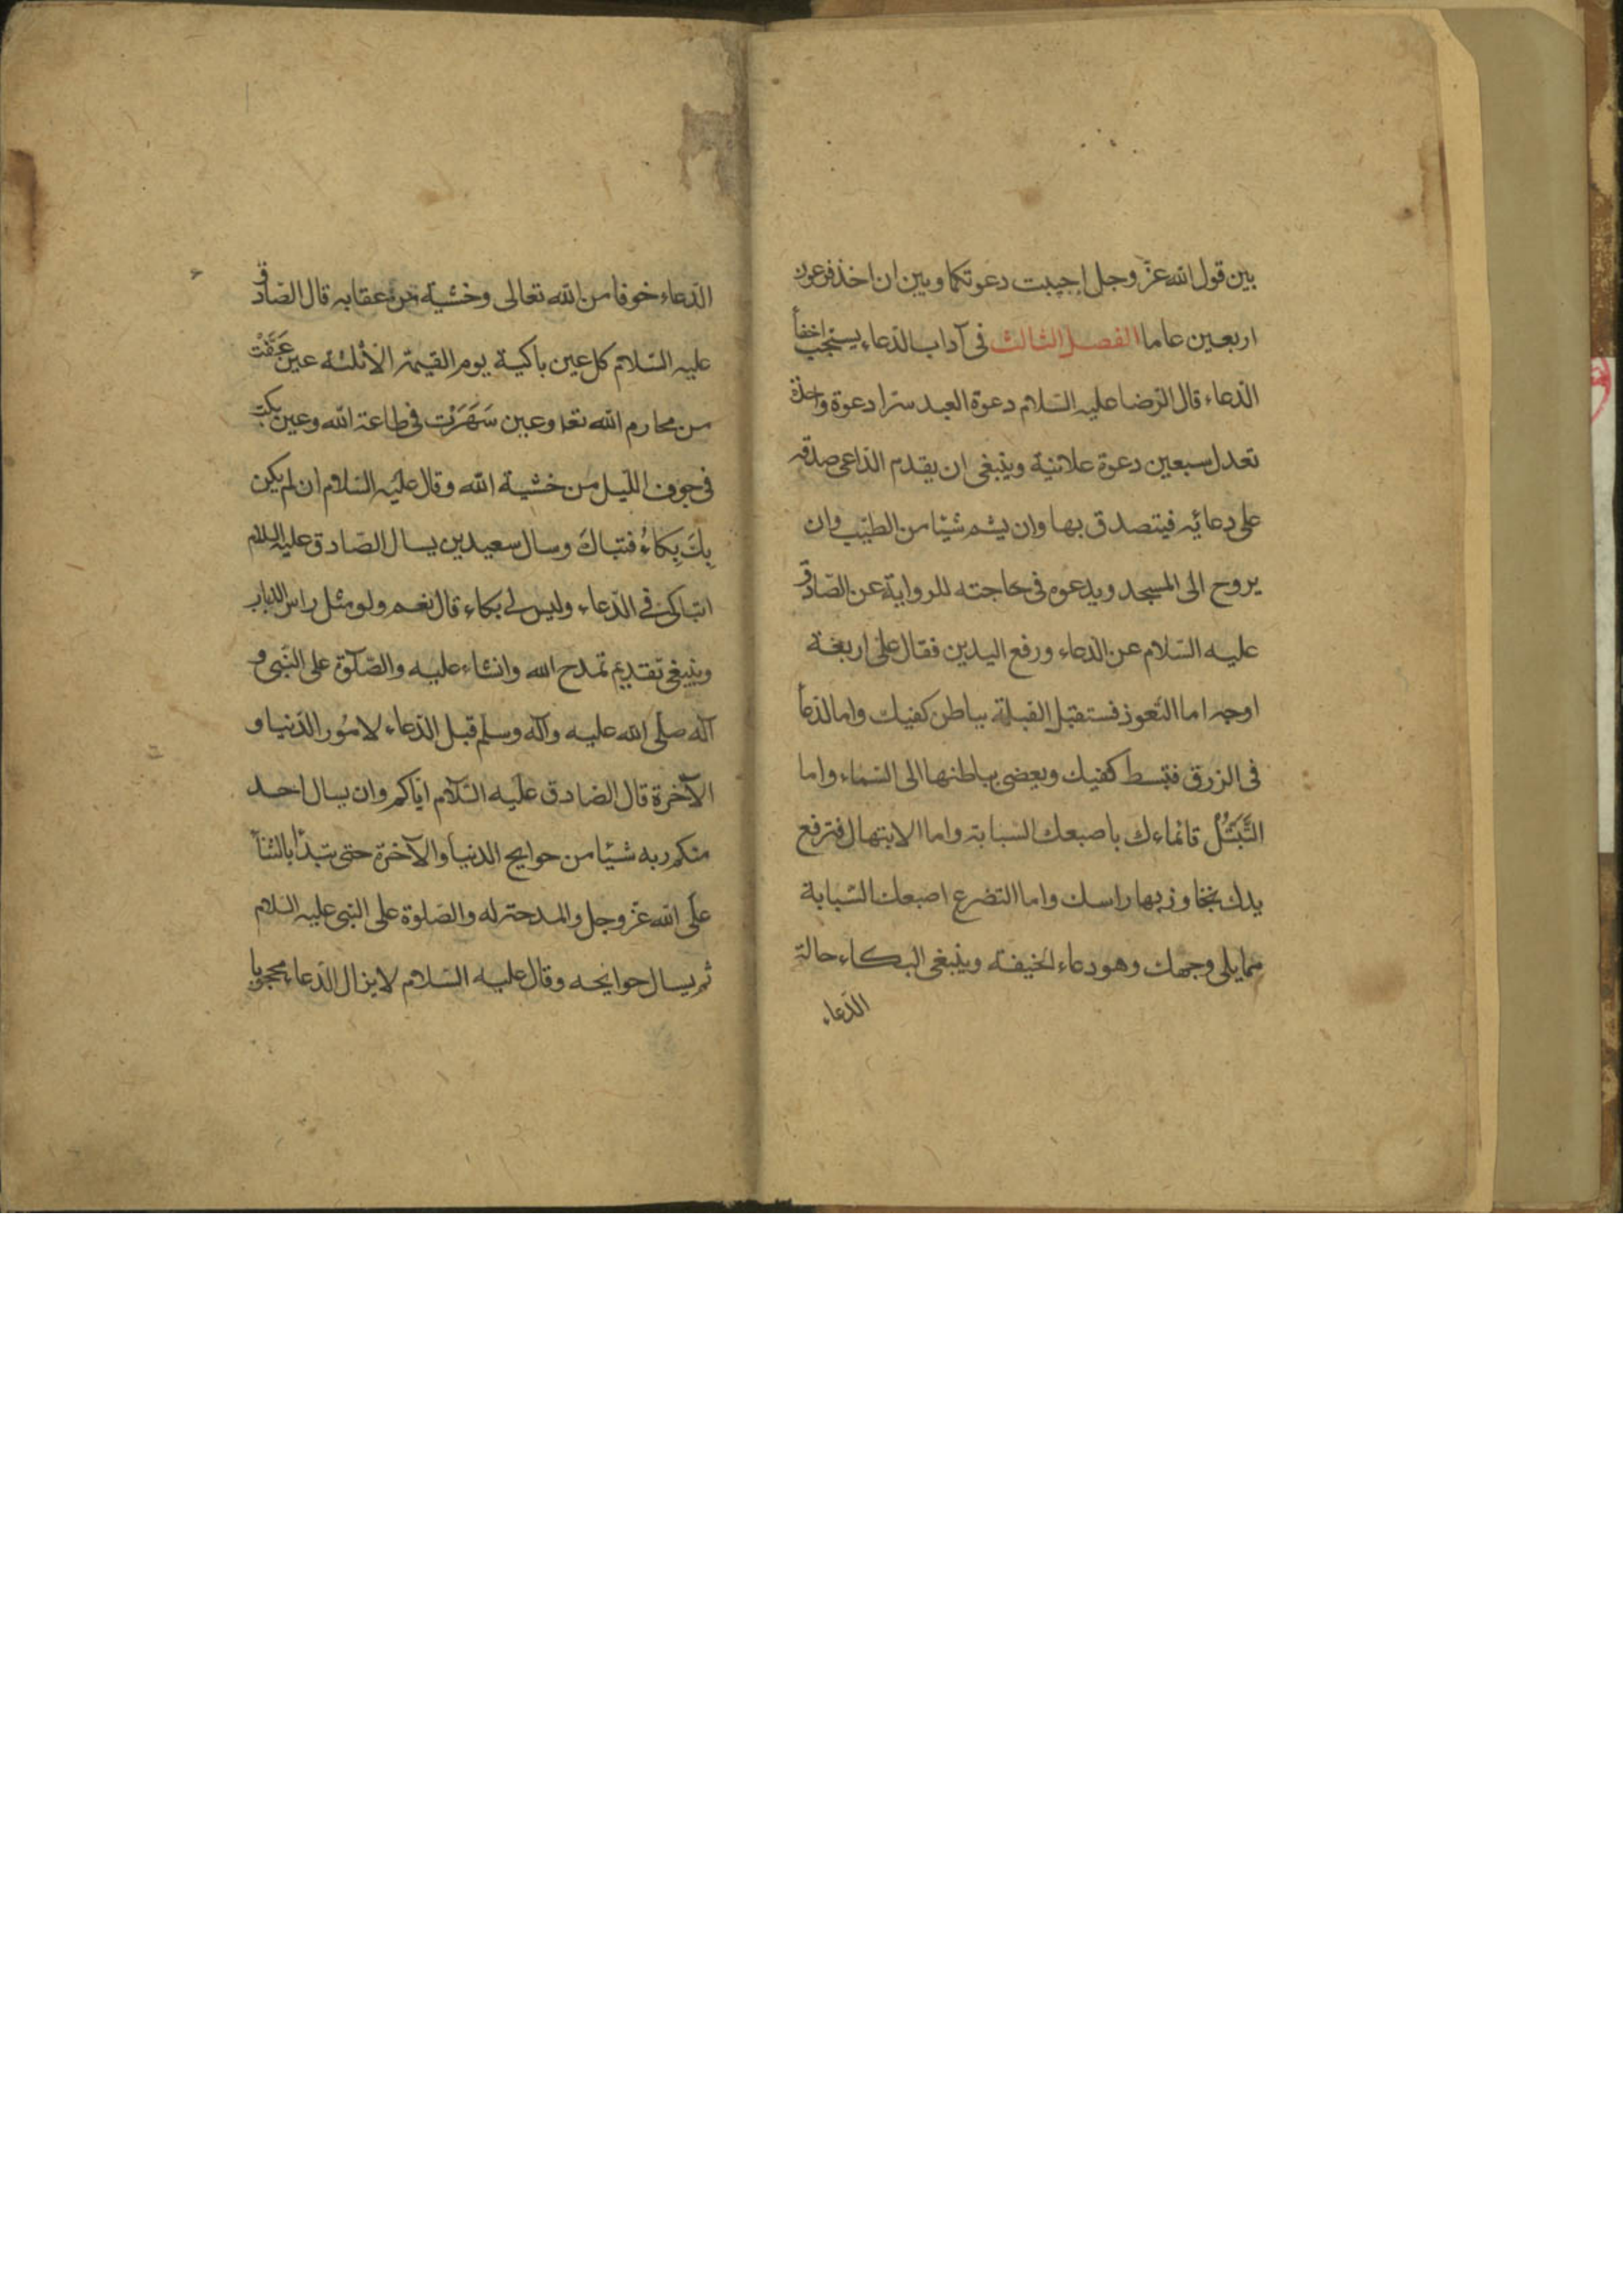 بين قول الله عز وجل اجيبت دعوتكما وبين ان اخذ فرعون
اربعين عاما الفصل الثالث فى آداب الدعاء يستحب اخفاء
الدعاء قال الرضا عليه السلام دعوة العبد سرا دعوة واحدة
تعدل سبعين دعوة علانية وينبغى ان يقدم الداعى صدقه
على دعائه فيتصدق بها وان يشم شيئا من الطيب وان
يروح الى المسجد ويدعوه فى حاجته للرواية عن الصادق
عليه السلام عن الدعاء ورفع اليدين فقال على اربعة
اوجه اما التعوذ فستقبل القبلة بباطن كفيك واما الدعاء
فى الرزق فتبسط كفيك ويعضى بباطنها الى السماء واما
التَّبَتُّل فانماءك باصبعك السبابة واما الابتهال فترفع
يدك تجاوز بها راسك واما التضرع اصبعك السبابة
مما يلى وجهك وهو دعاء لخيفة وينبغى البكاء حالة
الدعاء
الدعاء خوفا من الله تعالى وخشية من عقابه قال الصادق
عليه السلام كل عين باكية يوم القيمة الا ثلثة عين غَضَّتْ
من محارم الله تعا وعين سَهَرَتْ فى طاعة الله وعين بكت
فى جوف الليل من خشية الله وقال عليه السلام ان لم يكن
بِكَ بِكاءُ فتباكَ وسال سعيد بن يسال الصادق عليه السلام
اتباكى فى الدعاء وليس لى بكاء قال نعم ولو مثل راس الذباب
وينبغى تقديم تمدح الله واثناء عليه والصلوة على النبى و
آله صلى الله عليه وآله وسلم قبل الدعاء لامور الدنيا و
الآخرة قال الصادق عليه السلام اياكم وان يسال احد
منكم ربه شيئا من حوايج الدنيا والآخرة حتى يتبدأ بالثناء
على الله عز وجل والمدحة له والصلوة على النبى عليه السلام
ثم يسال حوايجه وقال عليه السلام لا يزال الدعاء محجوبا